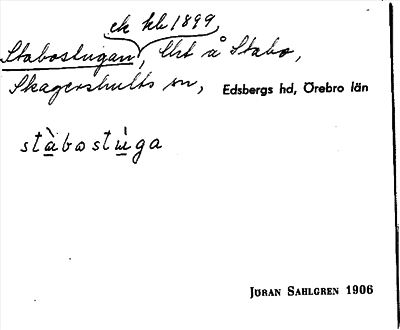 ek kb 1899,
Stabostugan, Uet å Stabo,
Skagershults sn, Edsbergs hd, Örebro län
stàbostùga
JÖRAN SAHLGREN 1906